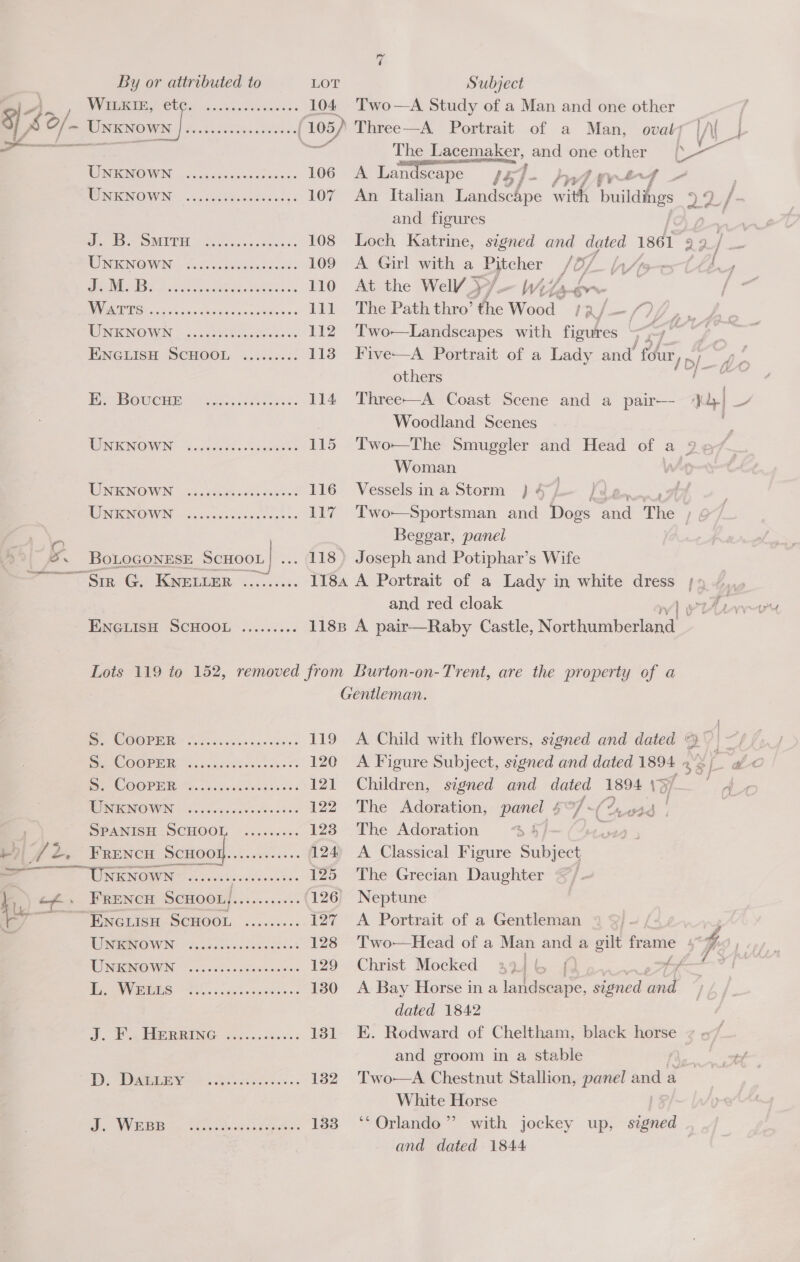 7
By or attributed to LOT Subject
WILKIE, etc. ............... 104 Two—A Study of a Man and one other
UNKNOWN .................. 105 Three—A Portrait of a Man, oval,
The Lacemaker, and one other
UNKNOWN .................. 106 A Landscape
UNKNOWN .................. 107 An Italian Landscape with buildings
and figures
J. B. SMITH ............... 108 Loch Katrine, signed and dated 1861
UNKNOWN .................. 109 A Girl with a Pitcher
J. M. B. ..................... 110 At the Well
WATTS ........................ 111 The Path thro' the Wood
UNKNOWN .................. 112 Two—Landscapes with figures
ENGLISH SCHOOL ......... 113 Five—A Portrait of a Lady and four
others
E. BOUCHE ............... 114 Three—A Coast Scene and a pair—
Woodland Scenes
UNKNOWN .................. 115 Two—The Smuggler and Head of a
Woman
UNKNOWN .................. 116 Vessels in a Storm
UNKNOWN .................. 117 Two—Sportsman and Dogs and The
Beggar, panel
BOLOGONESE SCHOOL ... 118 Joseph and Potiphar's Wife
SIR G. KNELLER ......... 118A A Portrait of a Lady in white dress
and red cloak
ENGLISH SCHOOL ......... 118B A pair—Raby Castle, Northumberland
Lots 119 to 152, removed from Burton-on-Trent, are the property of a
Gentleman.
S. COOPER .................. 119 A Child with flowers, signed and dated
S. COOPER .................. 120 A Figure Subject, signed and dated 1894
S. COOPER .................. 121 Children, signed and dated 1894
UNKNOWN .................. 122 The Adoration, panel
SPANISH SCHOOL ......... 123 The Adoration
FRENCH SCHOOL ............ 124 A Classical Figure Subject
UNKNOWN .................. 125 The Grecian Daughter
FRENCH SCHOOL ............ 126 Neptune
ENGLISH SCHOOL ......... 127 A Portrait of a Gentleman
UNKNOWN .................. 128 Two—Head of a Man and a gilt frame
UNKNOWN .................. 129 Christ Mocked
L. WELLS .................. 130 A Bay Horse in a landscape, signed and
dated 1842
J. F. HERRING ............ 131 E. Rodward of Cheltham, black horse
and groom in a stable
D. DALLEY ............... 132 Two—A Chestnut Stallion, panel and a
White Horse
J. WEBB .................. 133 "Orlando" with jockey up, signed
and dated 1844